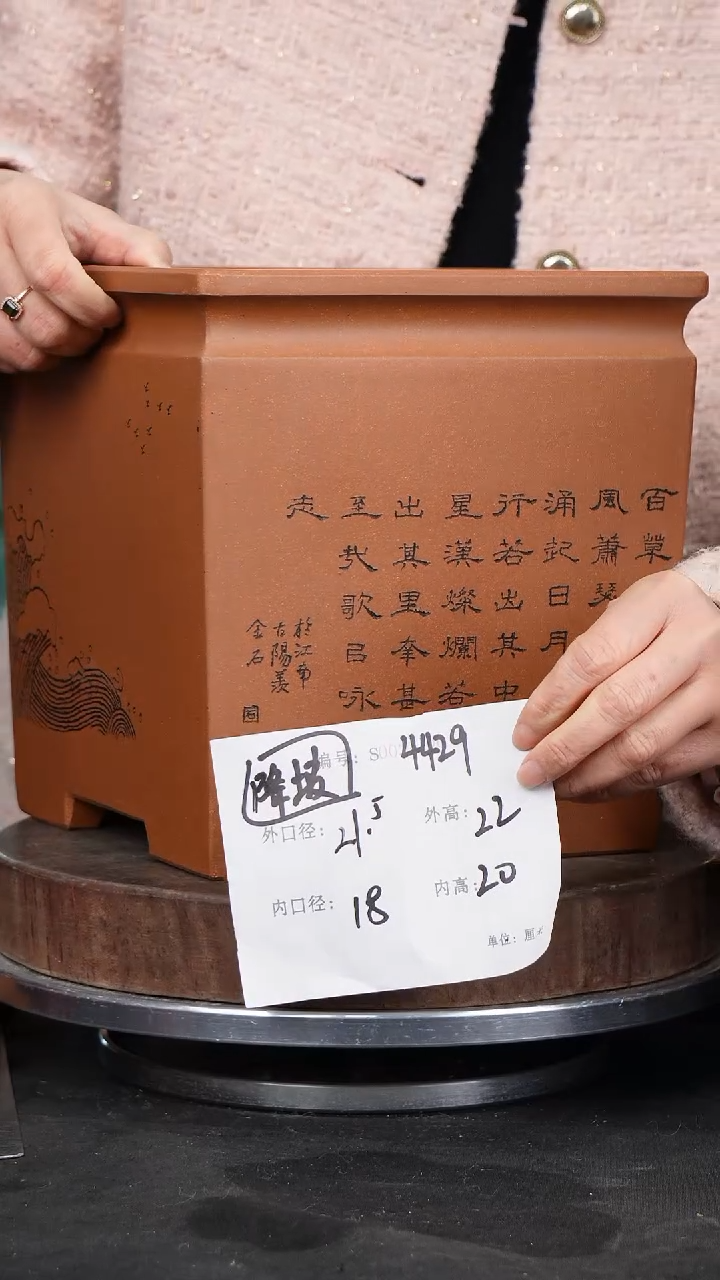 百草
風蕭瑟
涌起日月
行若出其中
星漢燦爛若
出其里幸甚
至哉歌㠯咏
志
於江南
古陽羨
金石
降坡 编号：S00 4429
外口径：21.5 外高：22
内口径：18 内高：20
单位：厘米